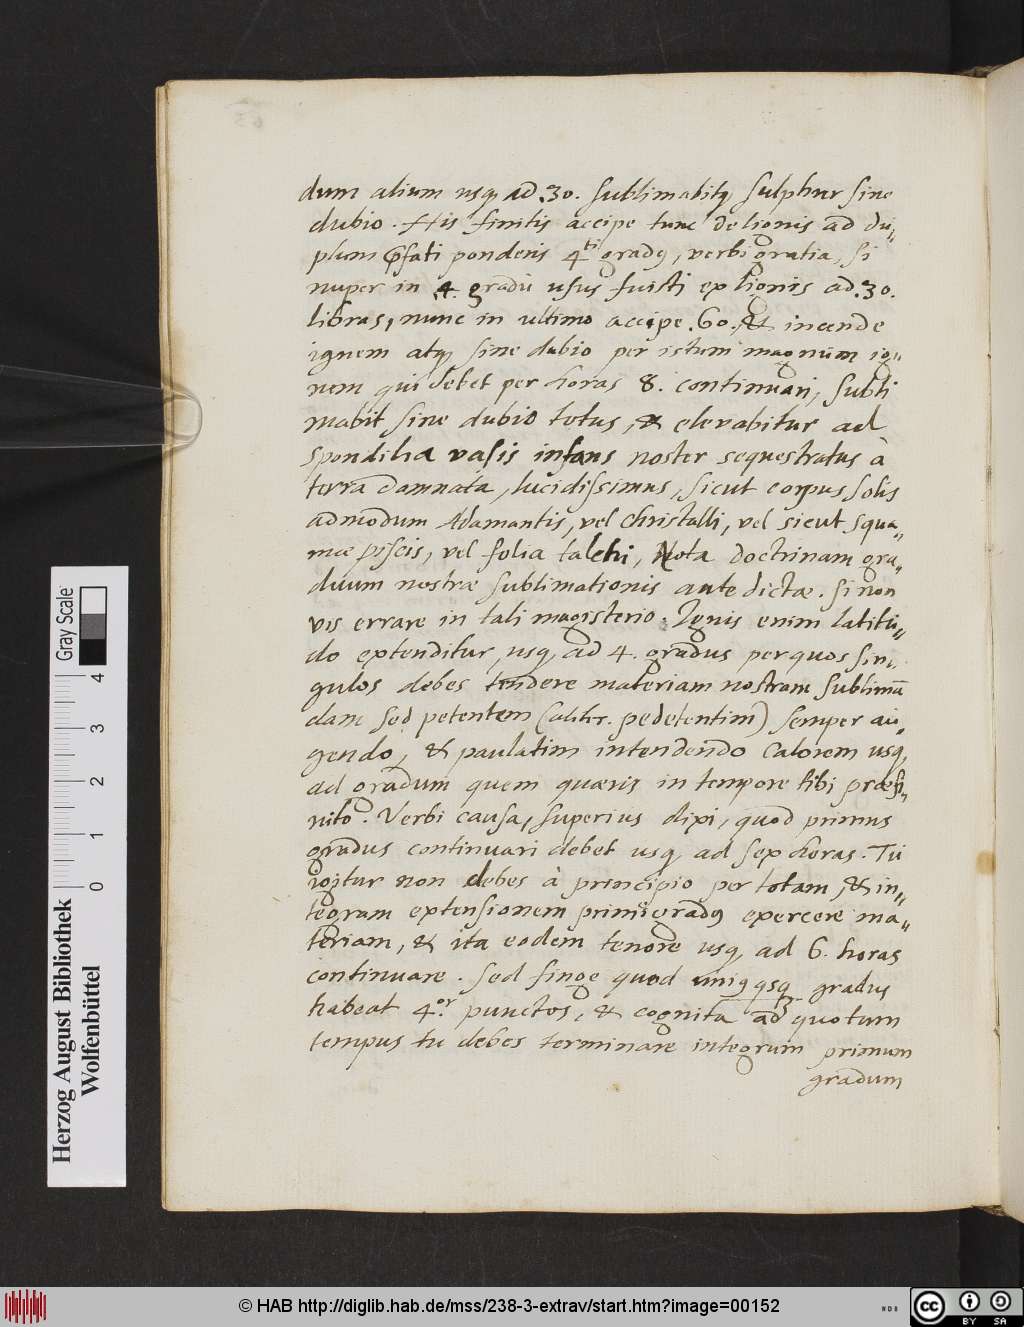 dum alium usq, ad .30. sublimabitq sulphur sine
dubio. His finitis accipe tunc de lignis ad du„
plum p̄fati ponderis 4ti gradq, verbi gratia, si
nuper in 4. gradu usus fuisti ex lignis ad .30.
libras, nunc in ultimo accipe .60. & incende
ignem atq, sine dubio per istum magnum ig„
nem qui debet per horas 8. continuari, subli
mabit sine dubio totus, & elevabitur ad
spondilia vasis infans noster sequestratus à
terra damnata, lucidissimus, sicut corpus solis
admodum Adamantis, vel christalli, vel sicut squa„
mæ piscis, vel folia talchi, Nota doctrinam gra„
duum nostræ sublimationis ante dictæ. si non
vis errare in tali magisterio. Ignis enim latitu„
do extenditur, usq, ad 4. gradus per quos sin„
gulos debes tendere materiam nostram sublimā
dam sed petentem (aliter. pedetentim) semper au„
gendo, & paulatim intendendo calorem usq,
ad gradum quem quæris in tempore tibi præfi„
nito. Verbi causa, superius dixi, quod primus
gradus continuari debet usq, ad sex horas. Tu
igitur non debes à principio per totam, & in„
tegram extensionem primi gradq exercere ma„
teriam, & ita eodem tenore usq, ad 6. horas
continuare. Sed finge quod unigqsq gradus
habeat 4or. punctos, & cognita ad quotum
tempus tu debes terminare integrum primum
gradum
Herzog August Bibliothek
Wolfenbüttel
0 1 2 3 4
Gray Scale
© HAB http://diglib.hab.de/mss/238-3-extrav/start.htm?image=00152
cc BY SA